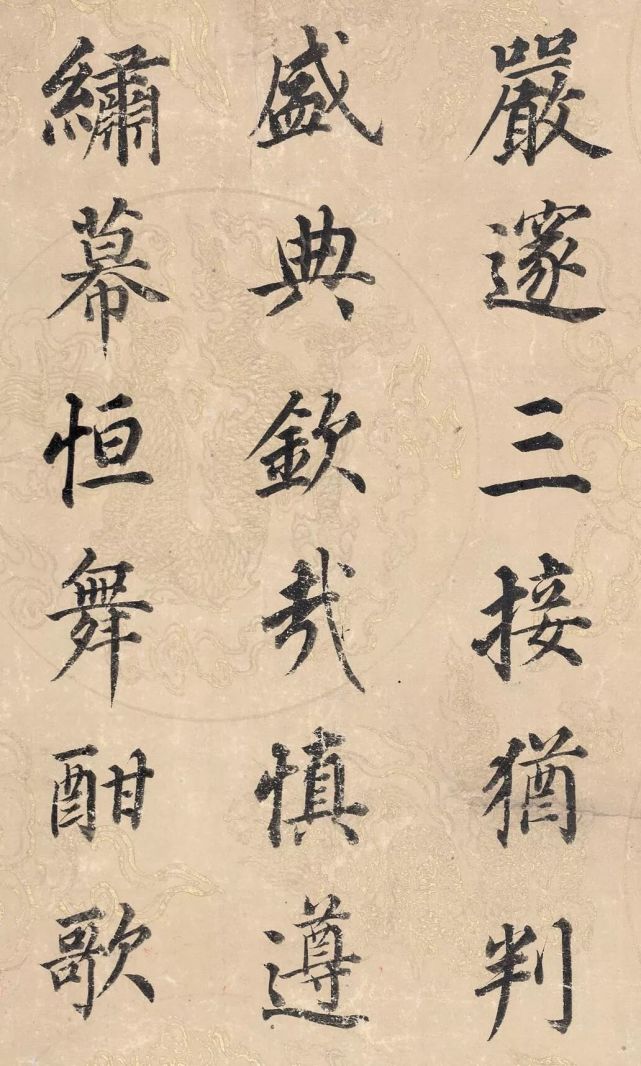 嚴邃三接猶判
盛典欽哉慎遵
繡幕恒舞酣歌